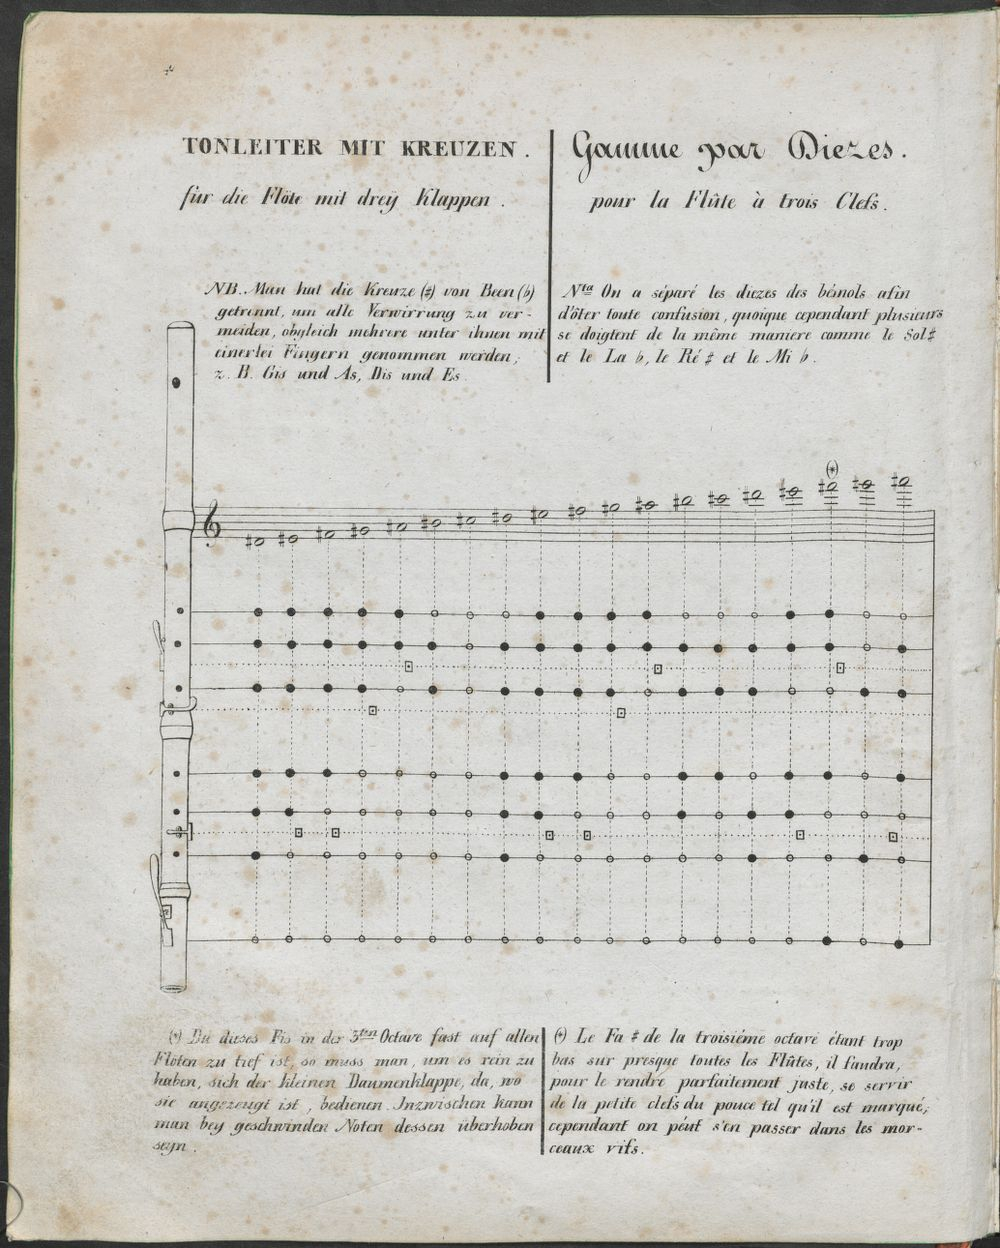 4
TONLEITER MIT KREUZEN.
für die Flöte mit dreÿ Klappen.
NB. Man hat die Kreuze (♯) von Been (♭)
getrennt, um alle Verwirrung zu ver-
meiden, obgleich mehrere unter ihnen mit
einerlei Fingern genommen werden,
z. B. Gis und As, Dis und Es.
Gamme par Diezes.
pour la Flûte à trois Clefs.
Nta On a séparé les diezes des bémols afin
d'ôter toute confusion, quoique cependant plusieurs
se doigtent de la même maniere comme le Sol♯
et le La ♭, le Ré ♯ et le Mi ♭.
(*)
(*) Da dieses Fis in der 3ten Octave fast auf allen
Flöten zu tief ist, so muss man, um es rein zu
haben, sich der kleinen Daumenklappe, da, wo
sie angezeugt ist, bedienen. Inzwischen kann
man bey geschwinden Noten dessen überhoben
seyn.
(*) Le Fa ♯ de la troisiéme octave étant trop
bas sur presque toutes les Flûtes, il faudra,
pour le rendre parfaitement juste, se servir
de la petite clefs du pouce tel qu'il est marqué;
cependant on peut s'en passer dans les mor-
ceaux vifs.